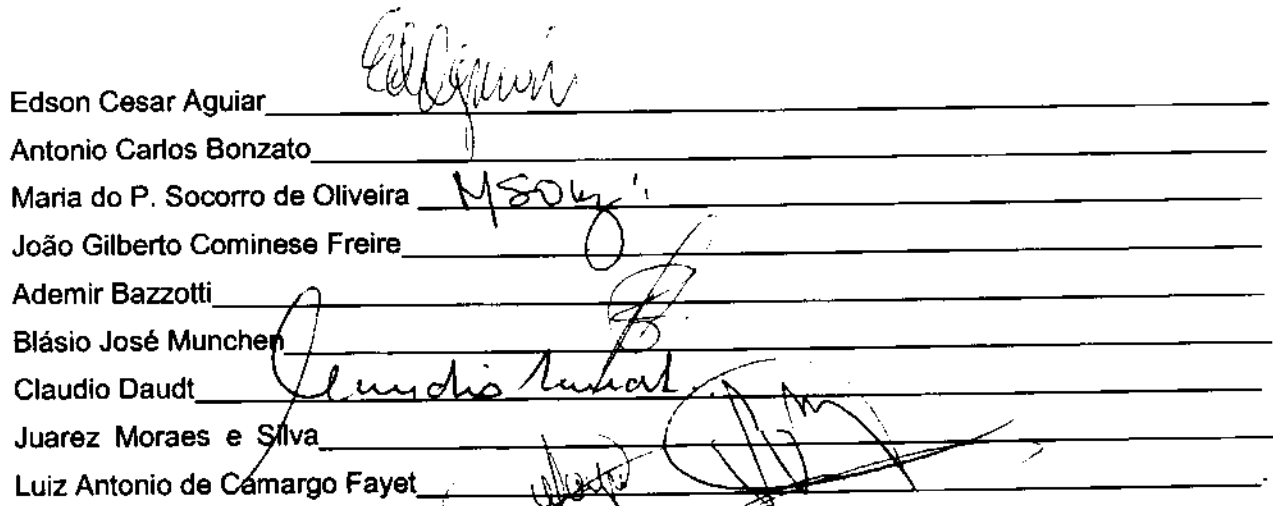 Edson Cesar Aguiar
Antonio Carlos Bonzato
Maria do P. Socorro de Oliveira
João Gilberto Cominese Freire
Ademir Bazzotti
Blásio José Munchen
Claudio Daudt
Juarez Moraes e Silva
Luiz Antonio de Camargo Fayet